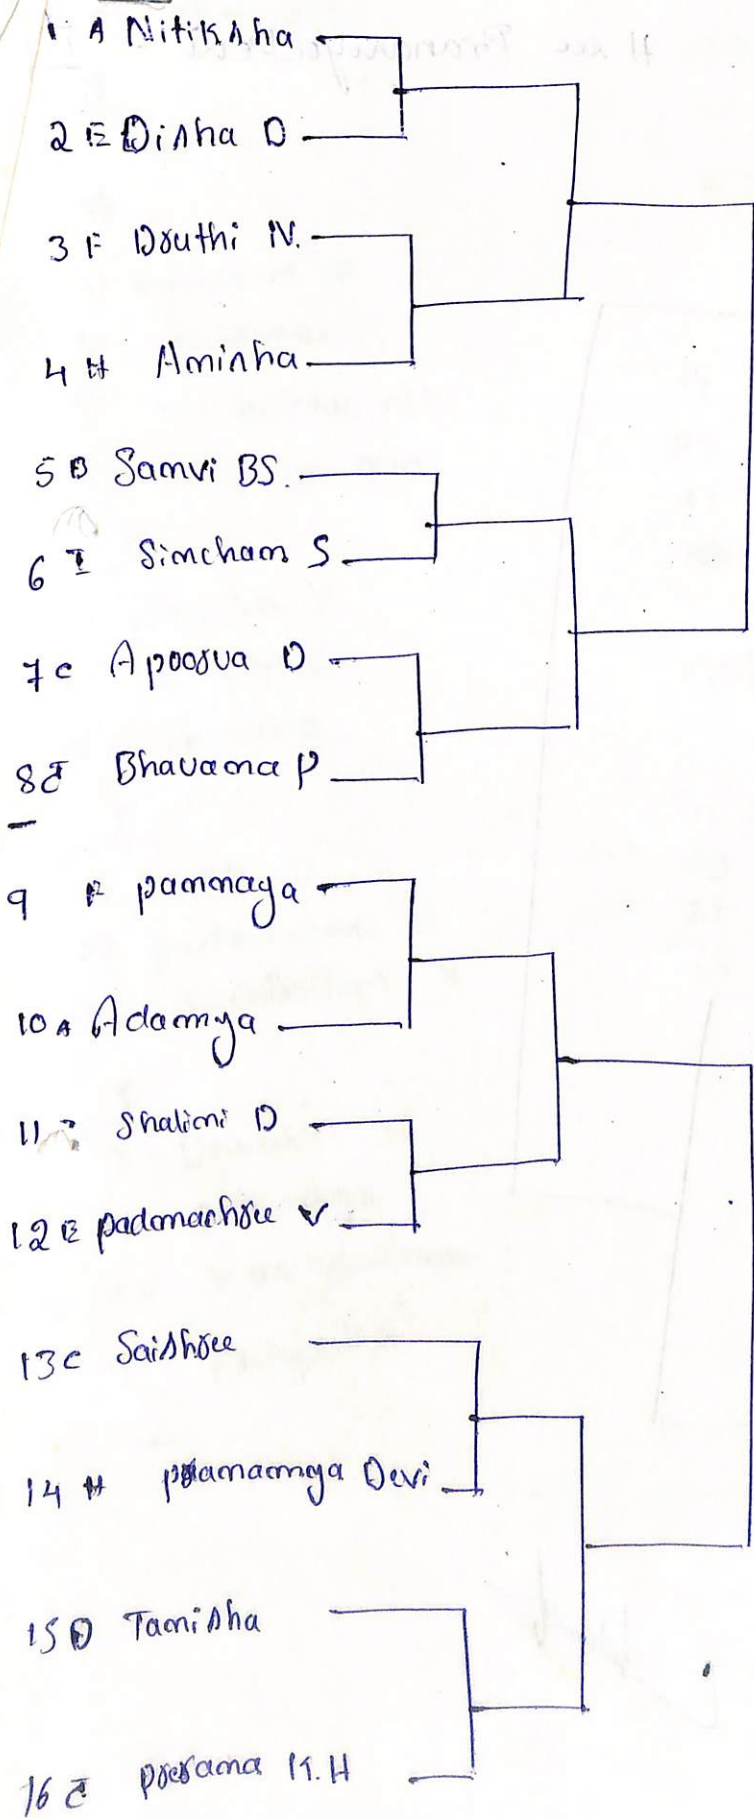 1 A Nitiksha
2 E Disha D
3 F Druthi N.
4 H Aminha
5 B Samvi BS.
6 I Sinchan S
7 C Apoorva D
8 Bhavana P
9 F pannaga
10 A Adamya
11 Shalini D
12 E padmashree V
13 C Saishree
14 H Devi
15 D Tanisha
16 prerana K.H